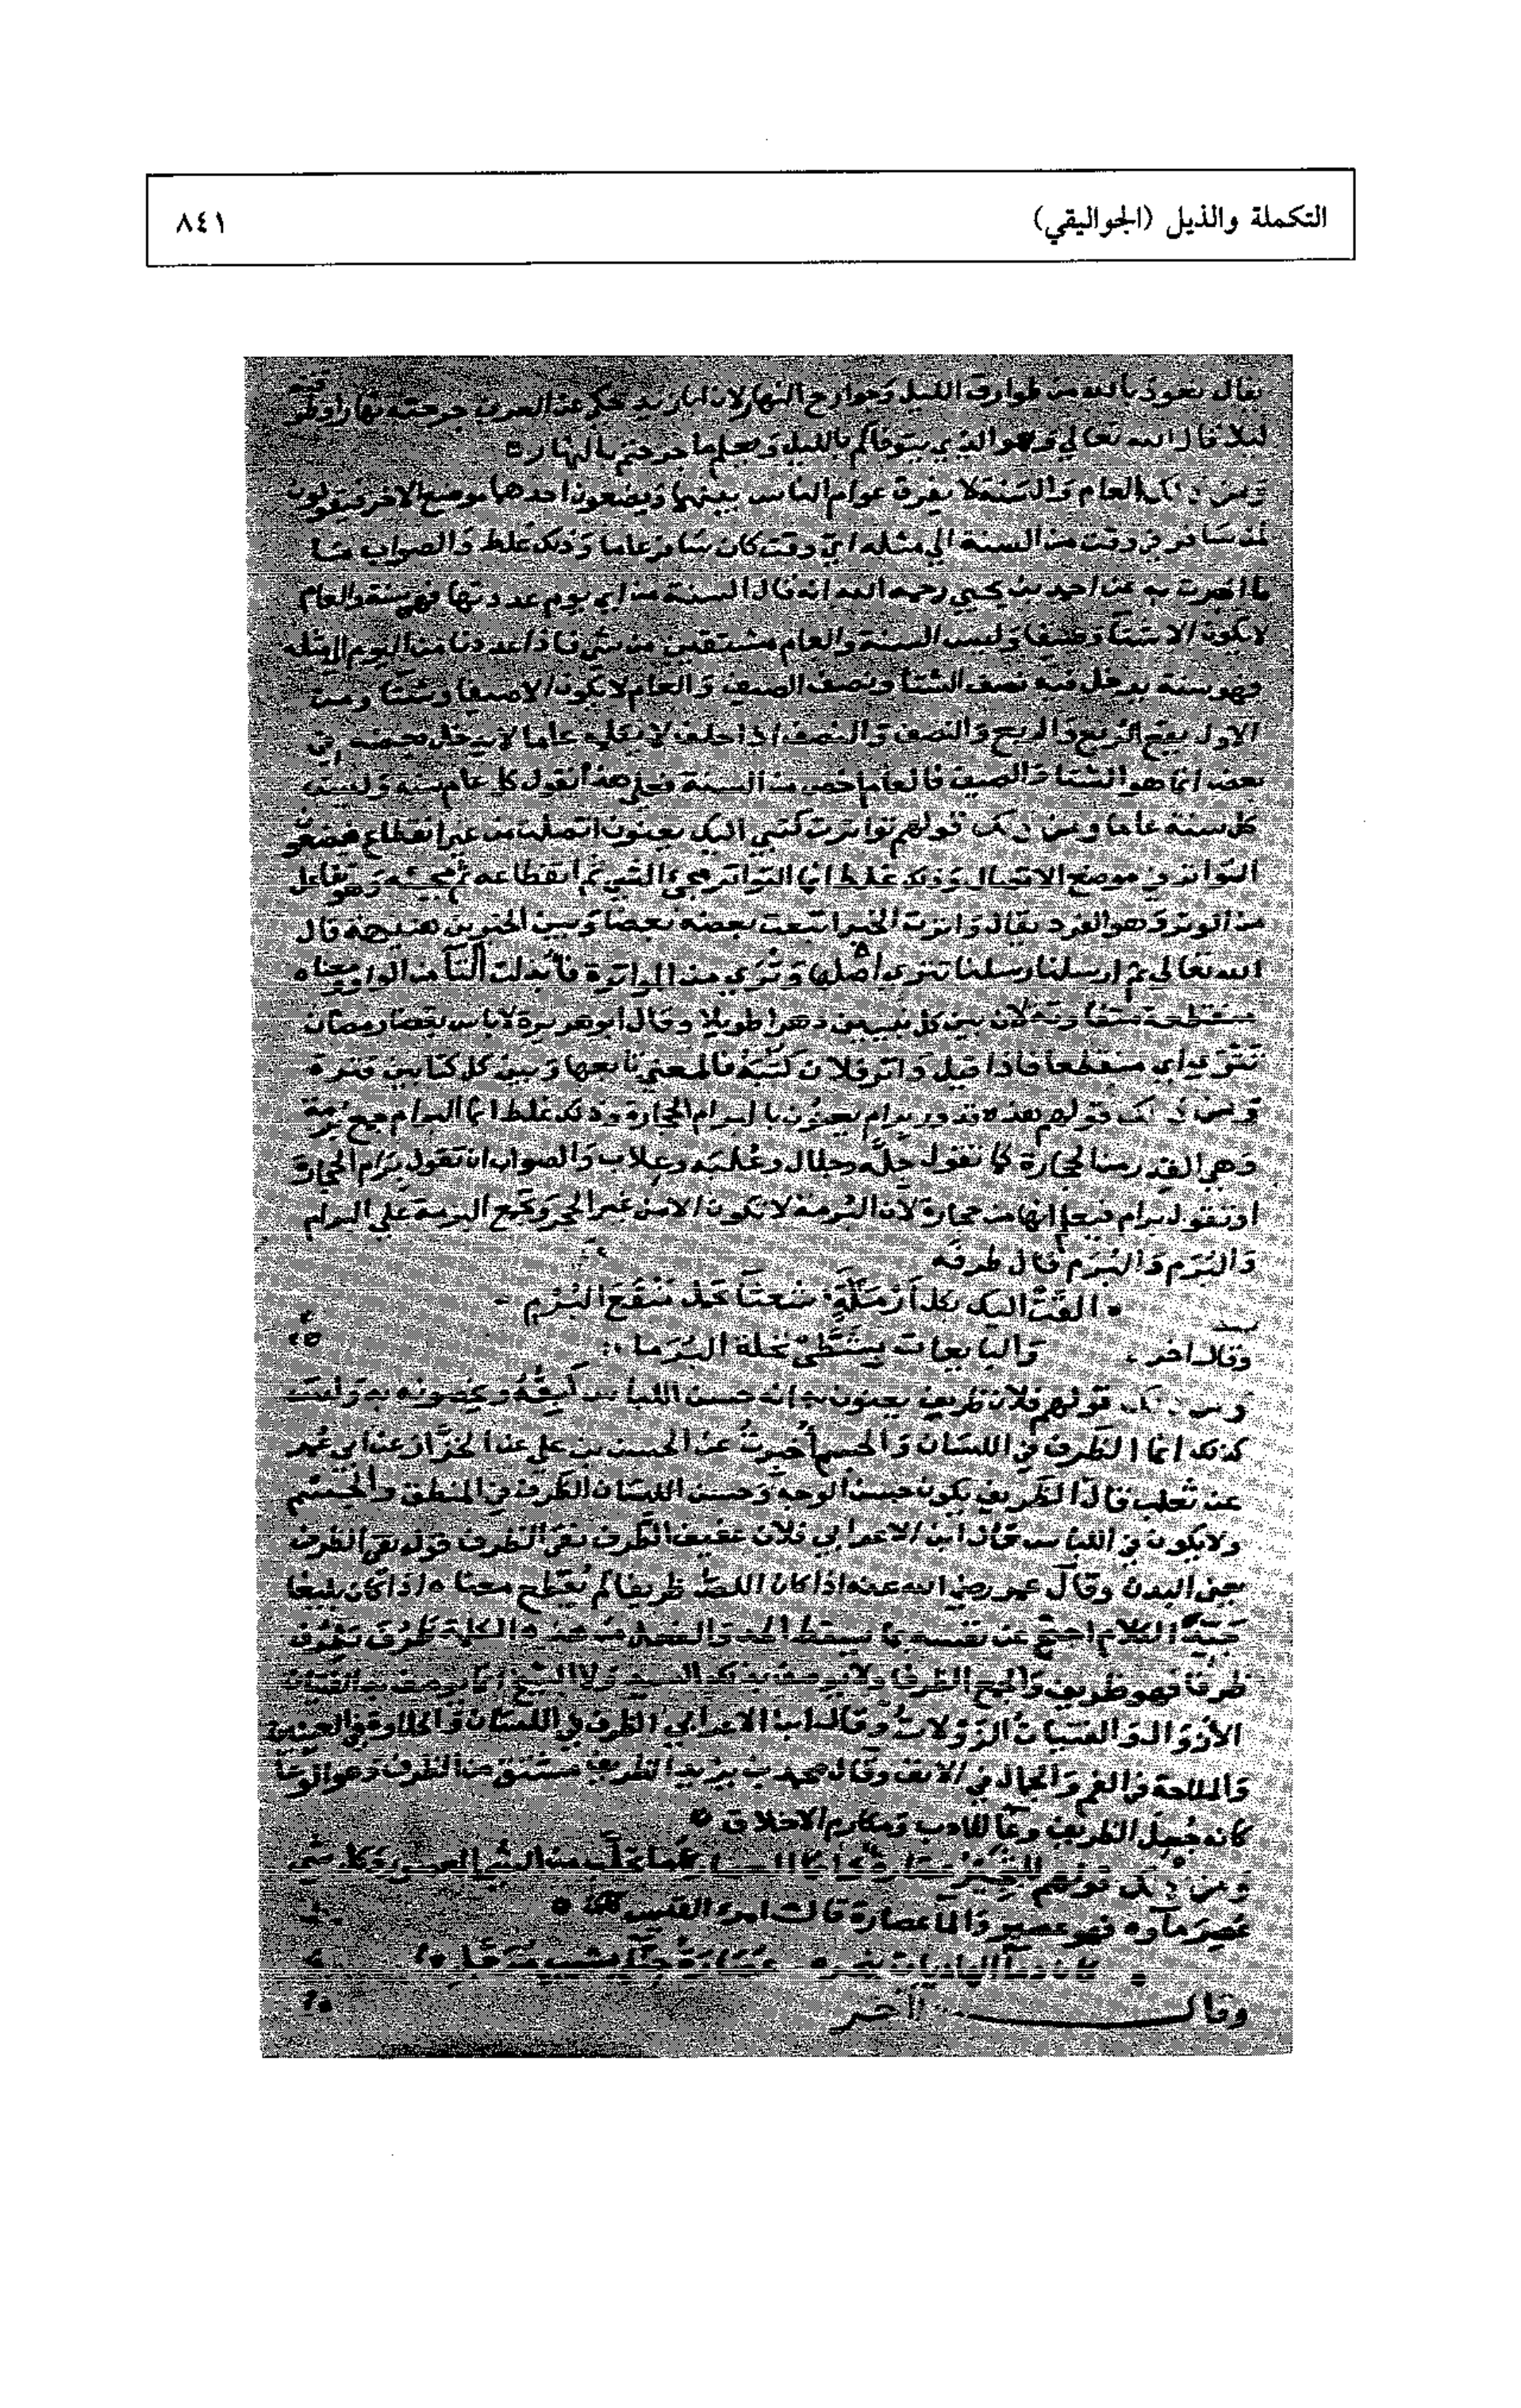 التكملة والذيل (الجواليقي)
٨٤١
يقال نعوذ بالله من طوارق الليل وجوارح النهار لان ابا زيد حكى عن العرب جرحته نهارا
ليلا قال الله تعالى وهو الذي يتوفاكم بالليل ويعلم ما جرحتم بالنهار
ومن ذلك العام والسنة لا يفرق عوام الناس بينهما ويضعون احدهما موضع الاخر فيقولون
لمن سافر في وقت من السنة الى مثله اي وقت كان سافر عاما وذلك غلط والصواب
ما اخبرت به عن احمد بن يحيى رحمه الله انه قال السنة من اي يوم عددتها فهي سنة والعام
لا يكون الا شتاء وصيفا وليس السنة والعام مشتقين من شي فاذا عددنا من اليوم الى مثله
فهو سنة يدخل فيه نصف الشتا ونصف الصيف والعام لا يكون الا صيفا وشتا ومن
الاول يقع الربع والربع والنصف والنصف اذا حلف لا يكلمه عاما لا يدخل بعضه في
بعض انما هو الشتا والصيف فالعام اخص من السنة فعلى هذا تقول كل عام سنة وليست
كل سنة عاما ومن ذلك قولهم تواترت كتبي اليك يعنون اتصلت من غير انقطاع فيضعون
التواتر في موضع الاتصال وذلك غلط انما التواتر مجيء الشي ثم انقطاعه ثم مجيئه وهو تفاعل
من الوتر وهو الفرد يقال واترت الخبر اتبعت بعضه بعضا وبين الخبرين هنيهة قال
الله تعالى ثم ارسلنا رسلنا تترى اصلها وترى من المواترة فأبدلت التا من الواو معناه
منقطعة متفاوتة لان بين كل نبيين دهرا طويلا وقال ابو هريرة لا باس بقضا رمضان
تترى اي منقطعا فاذا قيل واتر فلان كتبه فالمعنى تابعها وبين كل كتابين فترة
ومن ذلك قولهم هذه قدور برام يعنون بالبرام الحجارة وذلك غلط انما البرام جمع برمة
وهي القدر من الحجارة كما تقول جلة وجلال وعلبة وعلاب والصواب ان تقول برام الحجارة
او تقول برام فيعلم انها من حجارة لان البرمة لا تكون الا من الحجر وتجمع البرمة على البرام
والبرم والبرم قال طرفة
القت اليك بكل ارملة شعثا تحمل منقع البرم
وقال اخر والبايعات بشطي نخلة البرما
ومن ذلك قولهم فلان ظريف يعنون به انه حسن اللباس لبقه ويخصونه به وليس
كذلك انما الظرف في اللسان والجسم أخبرت عن الحسن بن علي عن الخزاز عن ابي عمر
عن ثعلب قال الظريف يكون حسن الوجه وحسن اللسان الظرف في المنطق والجسم
ولا يكون في اللباس قال ابن الاعرابي فلان عفيف الطرف نقي الظرف قوله نقي الظرف
يعني البدن وقال عمر رضي الله عنه اذا كان اللص ظريفا لم يقطع معناه اذا كان بليغا
جيد الكلام احتج عن نفسه بما يسقط الحد والفعل من هذه الكلمة ظرف يظرف
ظرفا فهو ظريف والجمع الظرفا ولا يوصف بذلك السيد ولا الشيخ انما يوصف به الفتيان
الأزوال والفتيات الزولات وقال ابن الاعرابي الظرف في اللسان والحلاوة في العينين
والملاحة في الفم والجمال في الانف وقال محمد بن يزيد الظريف مشتق من الظرف وهو الوعا
كانه جعل الظريف وعا للادب ومكارم الاخلاق
ومن ذلك قولهم وانما ما تحلب من الشي المعصور وكل شي
عصر ماوه فهو عصير والما عصارة قال امرو القيس
كان دما الهاديات بنحره عصارة حنا بشيب مرجل
وقال آخر